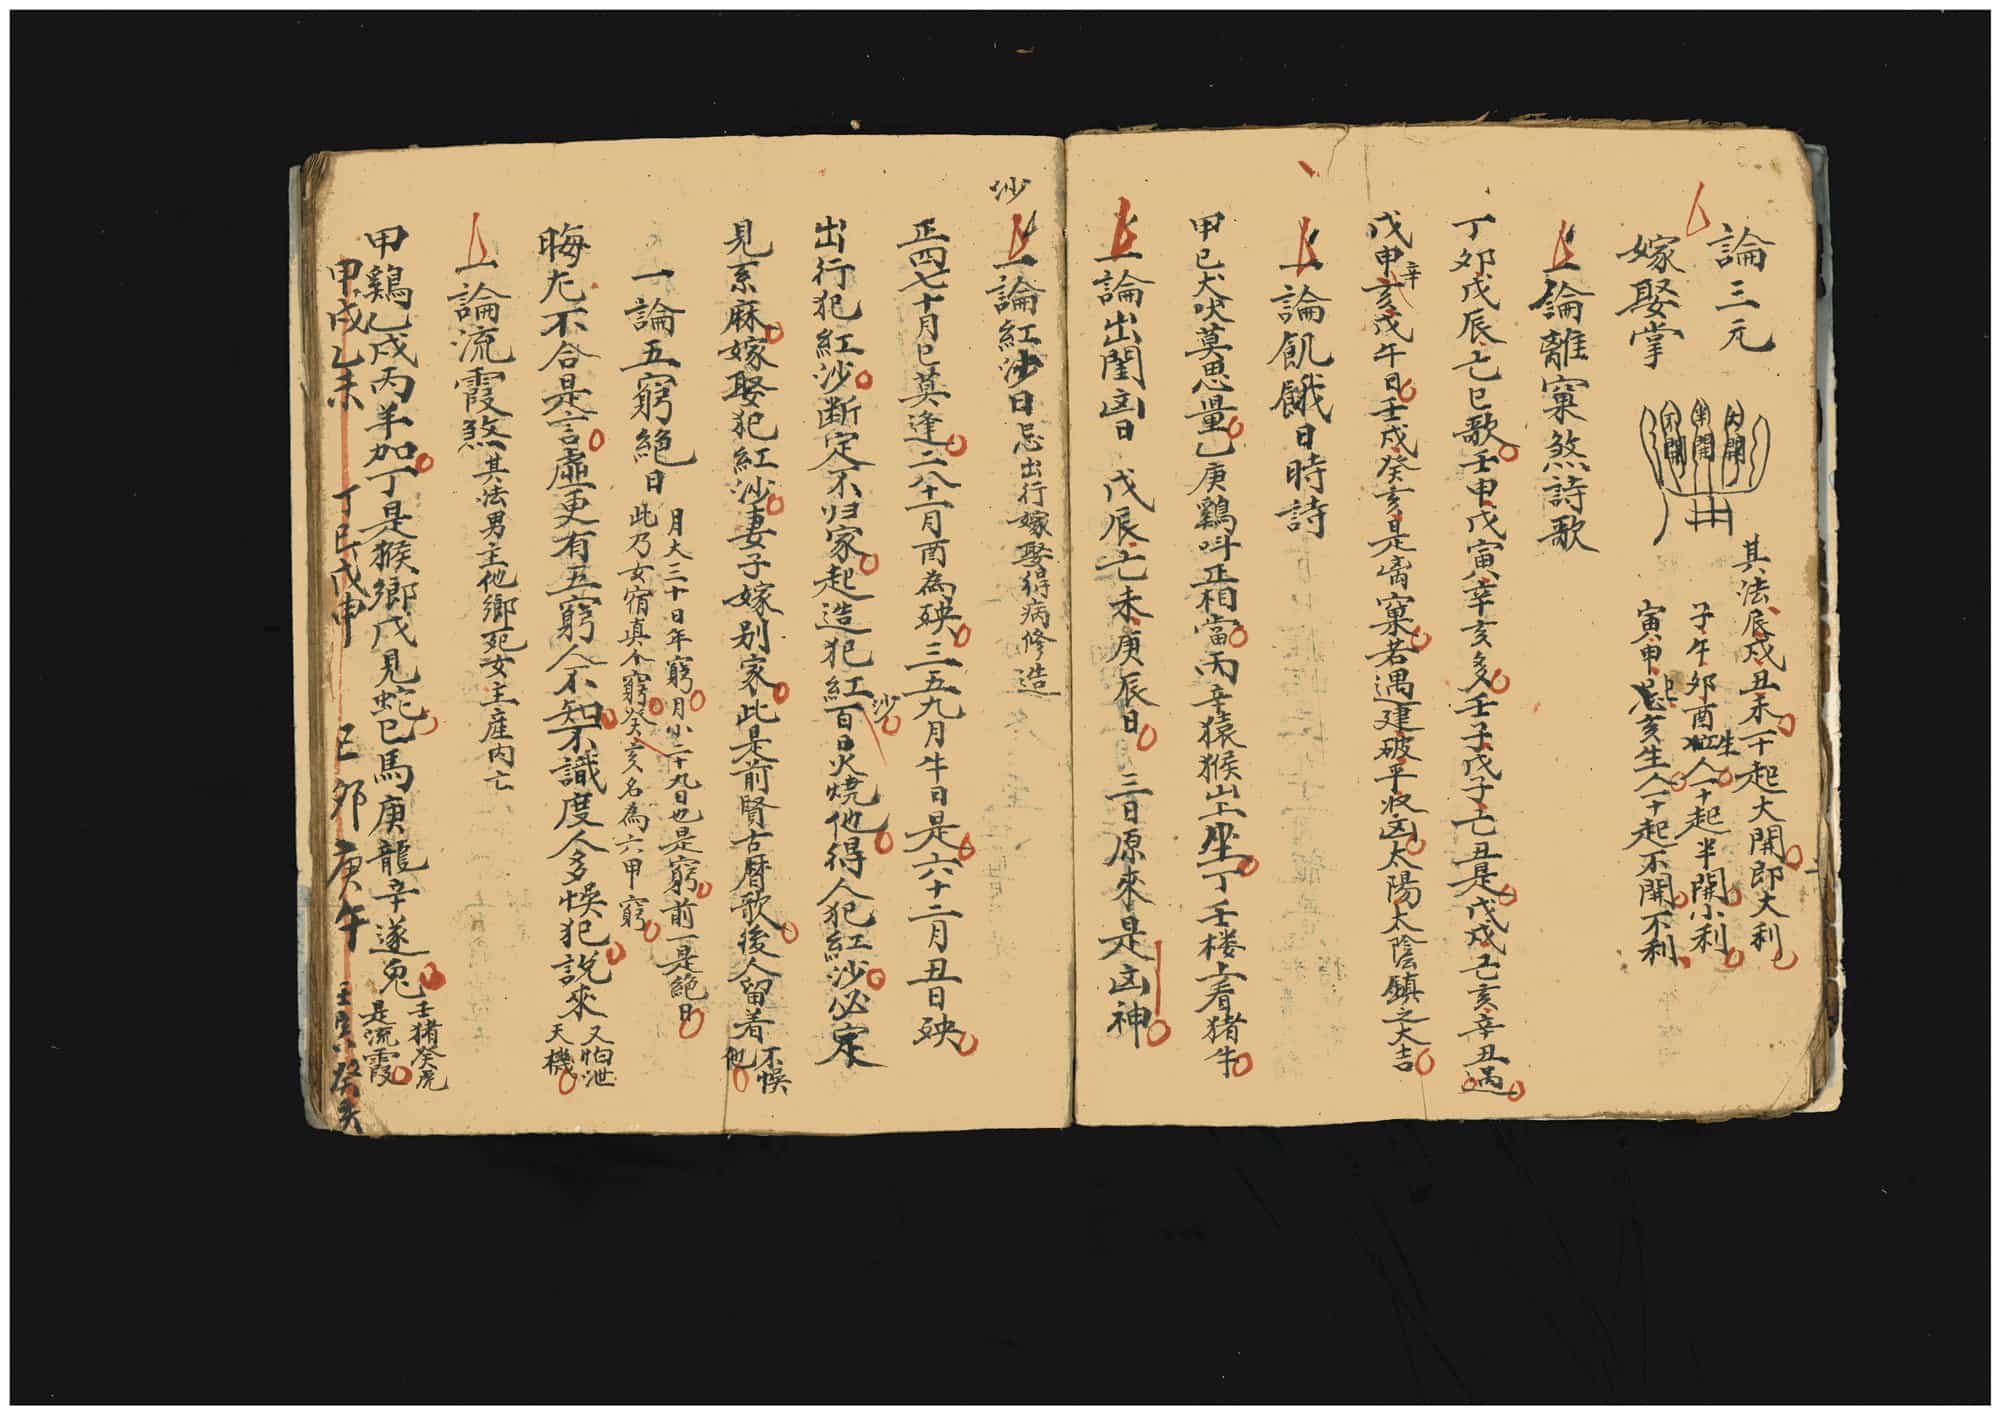 論三元
嫁娶掌
大開
半開
不開
其法辰戌丑未一十起大開即大利
子午卯酉生人一十起半開小利
寅申巳亥生人一十起不開不利
一論離窠煞詩歌
丁夘戊辰己巳歌壬申戊寅辛亥多壬子戊子己丑是戊戌己亥辛丑過
戊申辛亥戊午日壬戌癸亥是离窠若遇建破平收凶太陽太陰鎮之大吉
一論飢餓日時詩
甲己犬吠莫思量乙庚鷄叫正相當丙辛猿猴山上坐丁壬楼上看猪牛
一論出閨凶日 戊辰己未庚辰日 三日原來是凶神
沙
一論紅沙日忌出行嫁娶得病修造
正四七十月巳莫逢二八十一月酉為殃三五九月牛日是六十二月丑日殃
出行犯紅沙断定不归家起造犯紅沙百日火燒他得人犯紅沙必定
見系麻嫁娶犯紅沙妻子嫁别家此是前賢古暦歌後人留着不悞他
一論五窮絕日
月大三十日年窮月小二十九日也是窮前一是絕日
此乃女宿真个窮癸亥名為六甲窮
晦尤不合是言虛更有五窮人不知不識度人多悞犯說來又怕泄天機
一論流霞煞其法男主他鄉死女主産内亡
甲鷄乙戌丙羊加丁是猴鄉戊見蛇巳馬庚龍辛遂兎壬猪癸虎是流霞
甲戌乙未 丁巳戊申 己夘庚午 壬寅癸亥